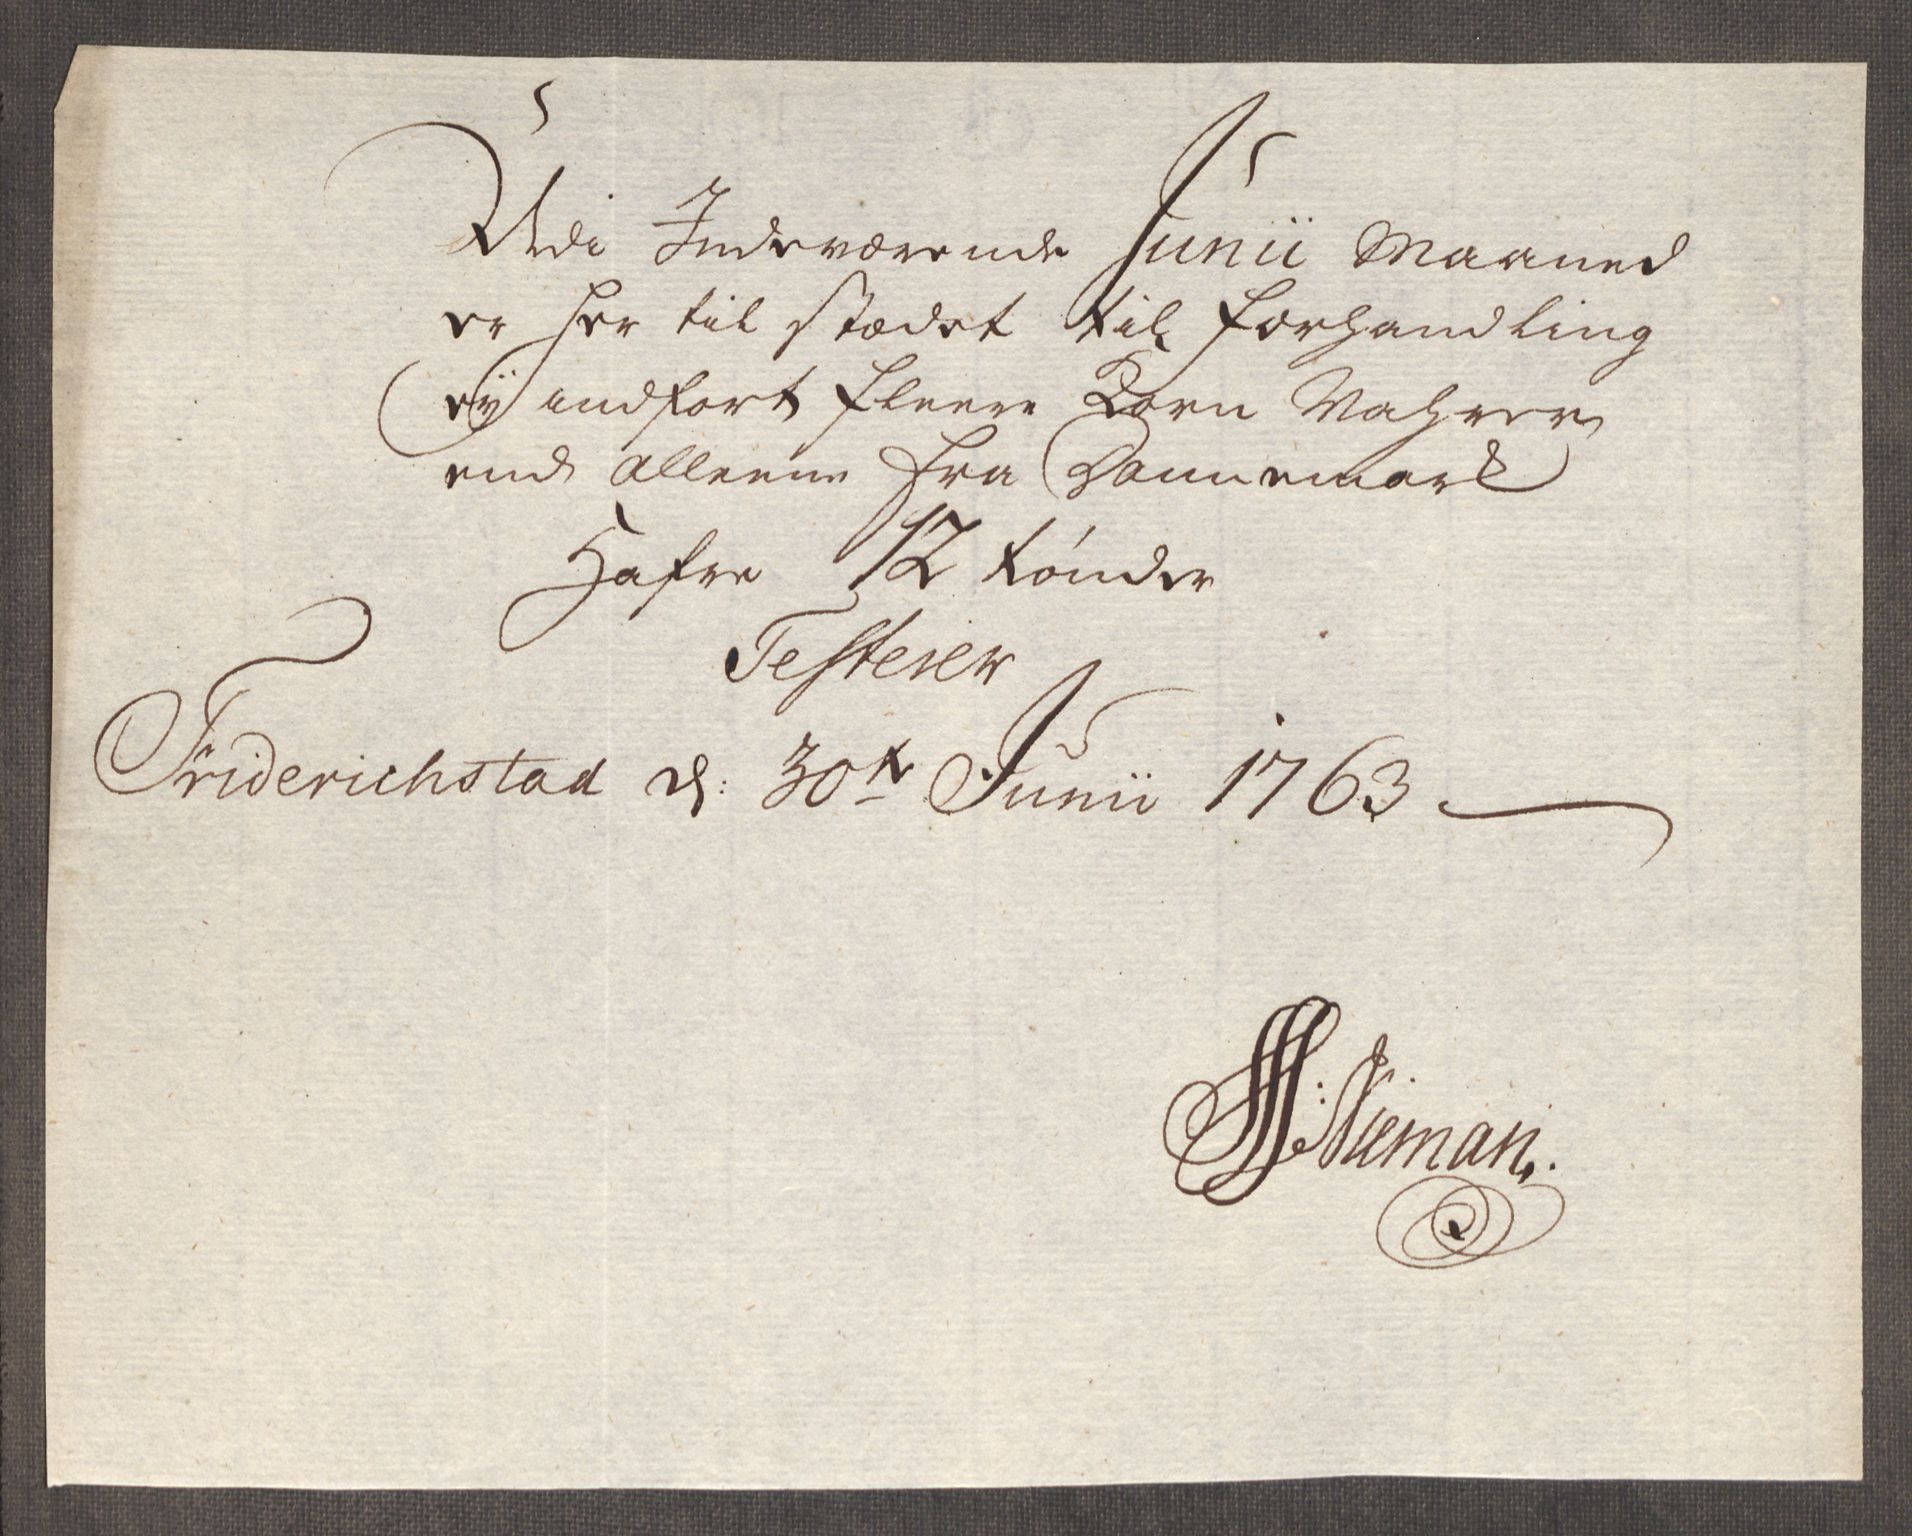 Udi Indeværende Junii Maaned
er her til stædet til forhandling
eÿ indført fleere Korn Vahrer
end alleene fra Dannemark
Hafre 12 tønder
Testerer
Friderichstad d: 30te Junii 1763
Nieman.